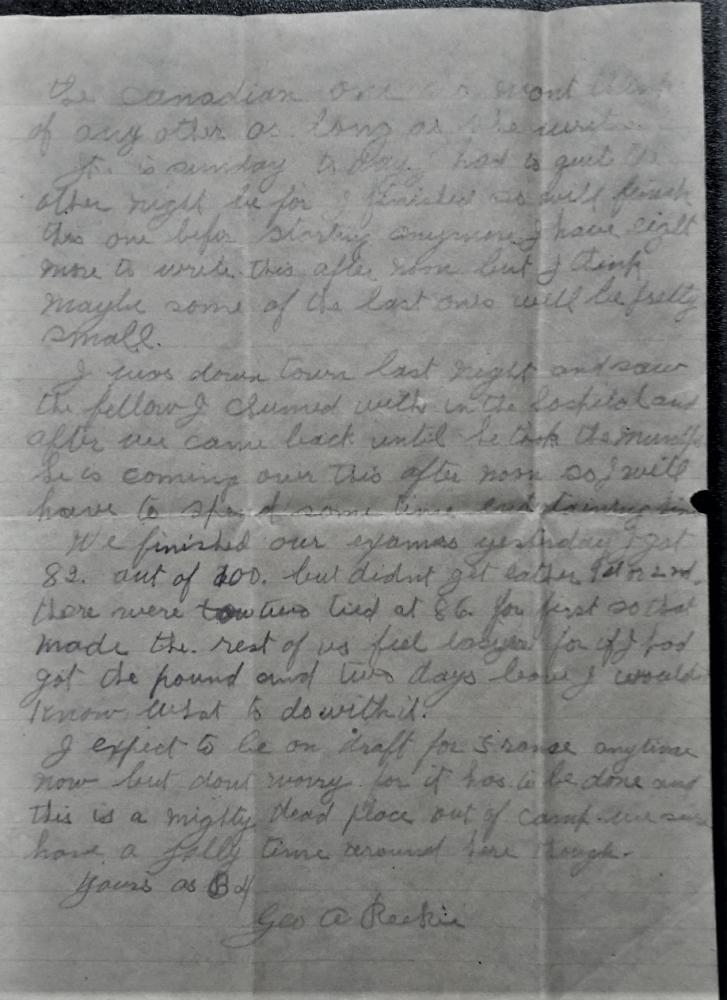 the canadian one wont think
of any other as long as she write
It is sunday to day, had to quit the
other night be for I finished so will finish
this one befor starting anymore I have eight
more to write this after noon but I think
maybe some of the last ones will be pretty
small.
I was down town last night and saw
the fellow I chumed with in the hospital and
after we came back until he took the mumps
he is coming over this after noon so I will
have to spend some time entertaining him
We finished our exames yesterday I got
82. out of 100. but didnt get eather 1st or 2nd.
there were two tied at 86. for first so that
made the. rest of us feel for if I had
got the pound and two days leave I would
know what to do with it.
I expect to be on draft for France anytime
now but dont worry for it has to be done and
this is a mighty dead place out of camp. we sure
have a jolly time around here though.
Yours as B4
Geo A Reekie